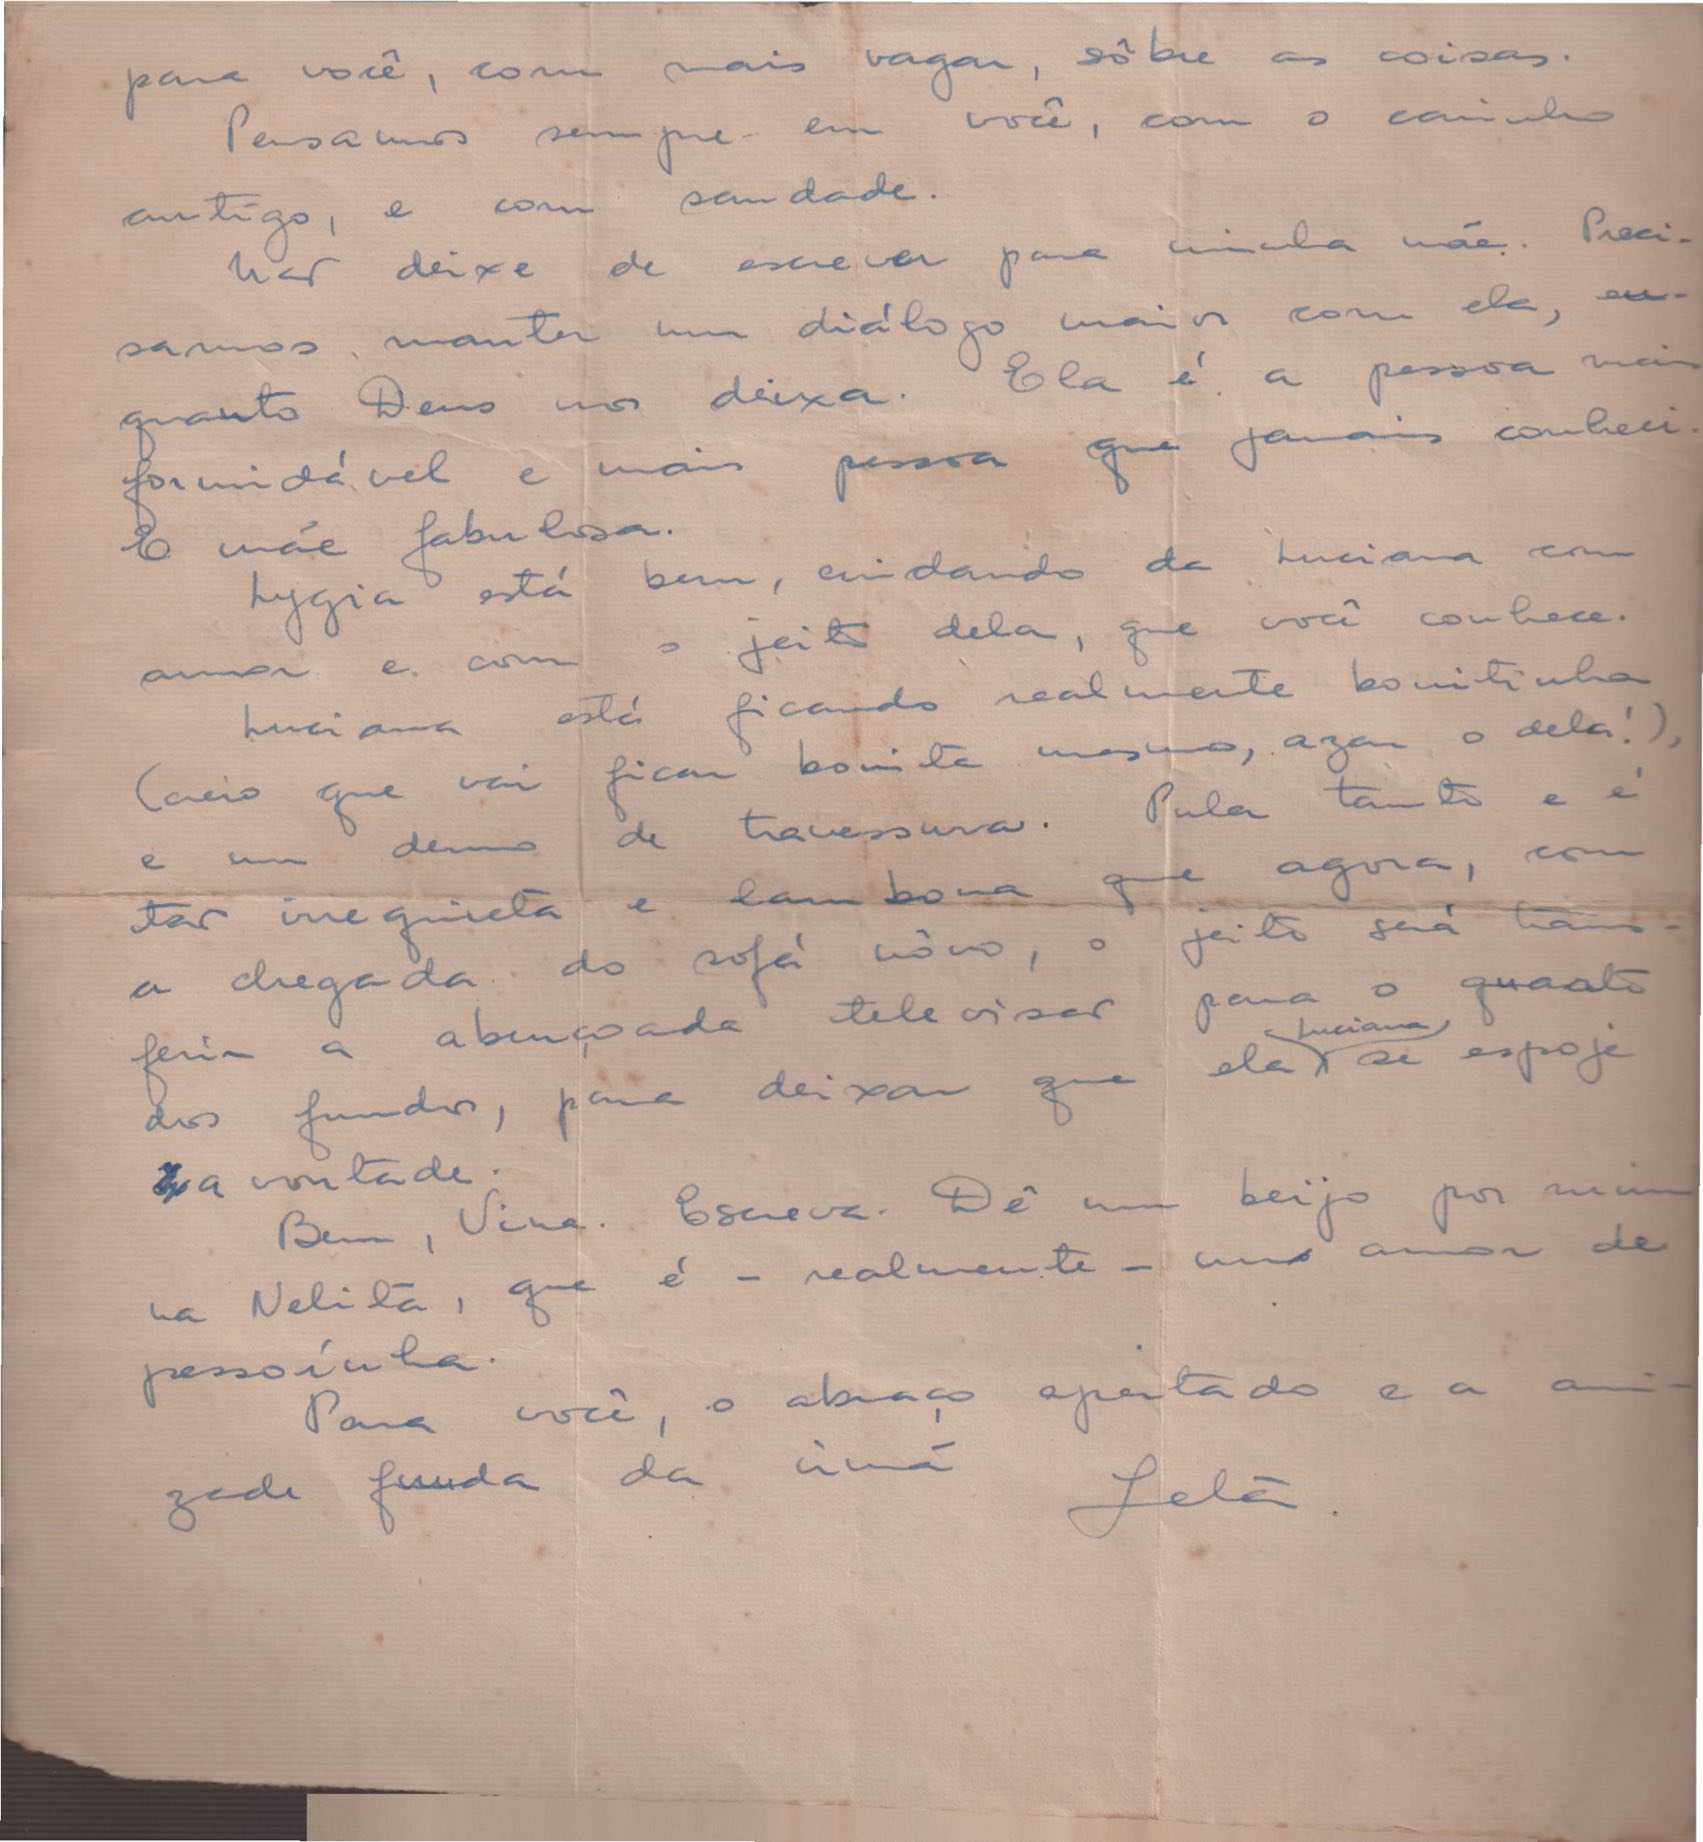 para você, com mais vagar, sôbre as coisas.
Pensamos sempre em você, com o carinho
antigo, e com saudade.
Não deixe de escrever para minha mãe. Preci-
samos manter um diálogo maior com ela, en-
quanto Deus nos deixa. Ela é a pessoa mais
formidável e mais pessoa que jamais conheci.
E mãe fabulosa.
Lygia está bem, cuidando da Luciana com
amor e com o jeito dela, que você conhece.
Luciana está ficando realmente bonitinha
(creio que vai ficar bonita mesmo, azar o dela!),
e um demo de travessura. Pula tanto e é
tão irrequieta e lambona que agora, com
a chegada do sofá nôvo, o jeito será trans-
ferir a abençoada televisão para o quarto
dos fundos, para deixar que ela (Luciana) se espoje
a vontade.
Bem, Vina. Escreva. Dê um beijo por mim
na Nelita, que é - realmente - um amor de
pessoínha.
Para você, o abraço apertado e a ami-
zade funda da irmã Letã.